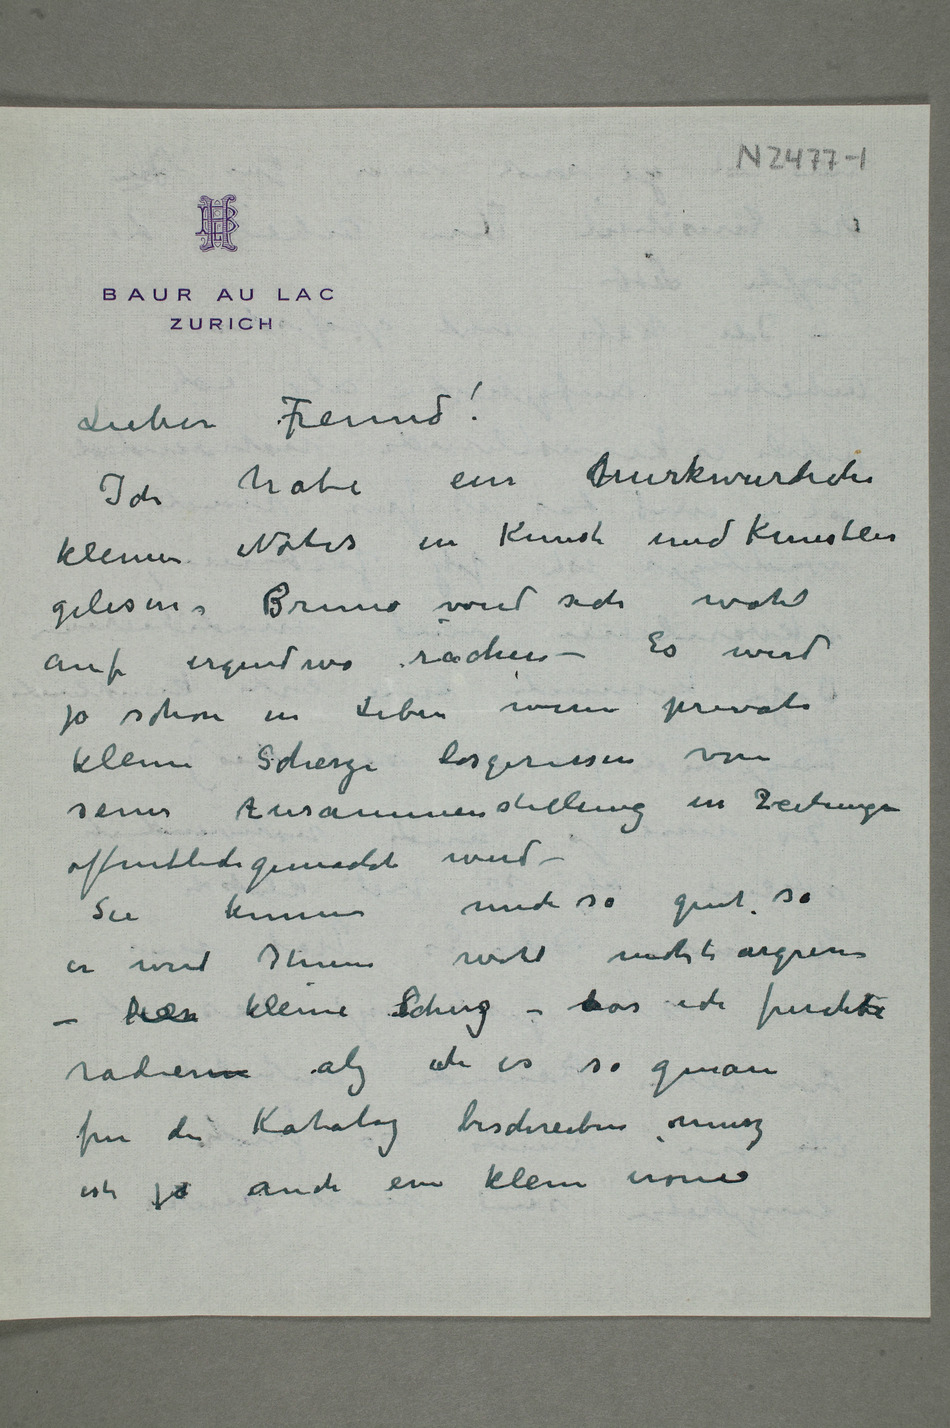 N2477-1
HB
BAUR AU LAC
ZURICH
Lieber Freund!
Ich habe ein Murkwürdiche
kleine Notis in Kunst und Kunstler
gelesen. Bruno word sich wohl
auf irgendwo rächen – Es wird
ja schon in Leben wenn privats
kleine Scherze losgerissen von
seiner Zusammenstellung in Zeitunge
offentlich gemacht wird –
Sie kennen mich so gut, so
er wird Ihnen wohl nicht argren
– kleine Scherz – das ich furchte
radieren als ich es so genau
fur die Katalog beschreiben musz
ist ja auch ein klein ironie